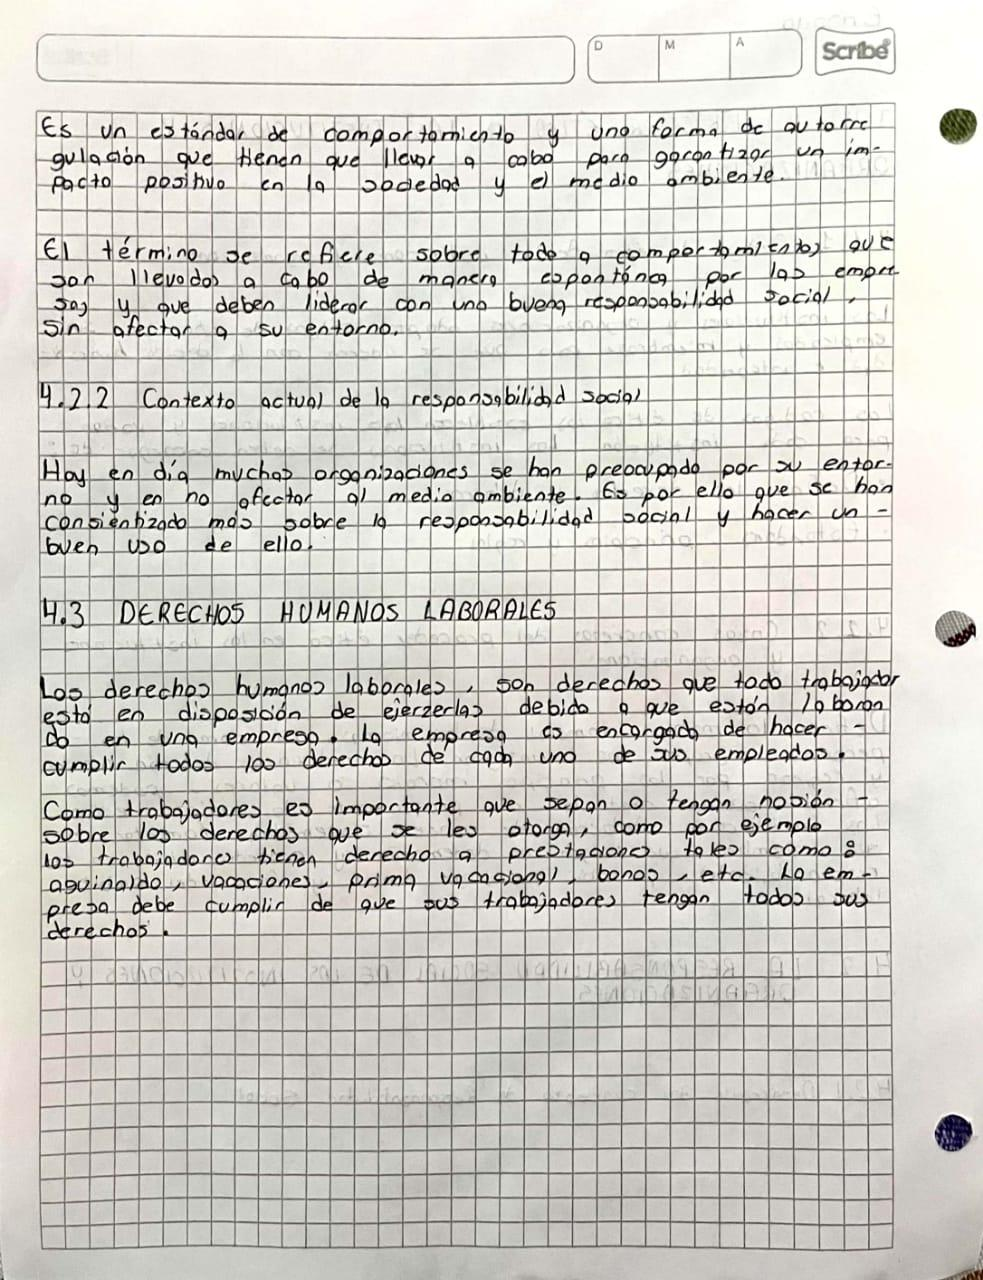 D M A
Scribe
Es un estándar de comportamiento y una forma de autorre
gulación que tienen que llevar a cabo para garantizar un im-
pacto positivo en la sociedad y el medio ambiente.
El término se refiere sobre todo a comportamientos que
son llevados a cabo de manera espontánea por las empre
sas y que deben liderar con una buena responsabilidad social,
sin afectar a su entorno.
4.2.2 Contexto actual de la responsabilidad social
Hoy en día muchas organizaciones se han preocupado por su entor-
no y en no afectar al medio ambiente. Es por ello que se han
consientizado más sobre la responsabilidad social y hacer un -
buen uso de ello.
4.3 DERECHOS HUMANOS LABORALES
Los derechos humanos laborales, son derechos que todo trabajador
está en disposición de ejerzerlas debido a que están laboran
do en una empresa. La empresa es encargada de hacer -
cumplir todos los derechos de cada uno de sus empleados.
Como trabajadores es importante que sepan o tengan nosión -
sobre los derechos que se les otorga, como por ejemplo
los trabajadores tienen derecho a prestaciones tales como:
aguinaldo, vacaciones, prima vacacional, bonos, etc. La em-
presa debe cumplir de que sus trabajadores tengan todos sus
derechos.